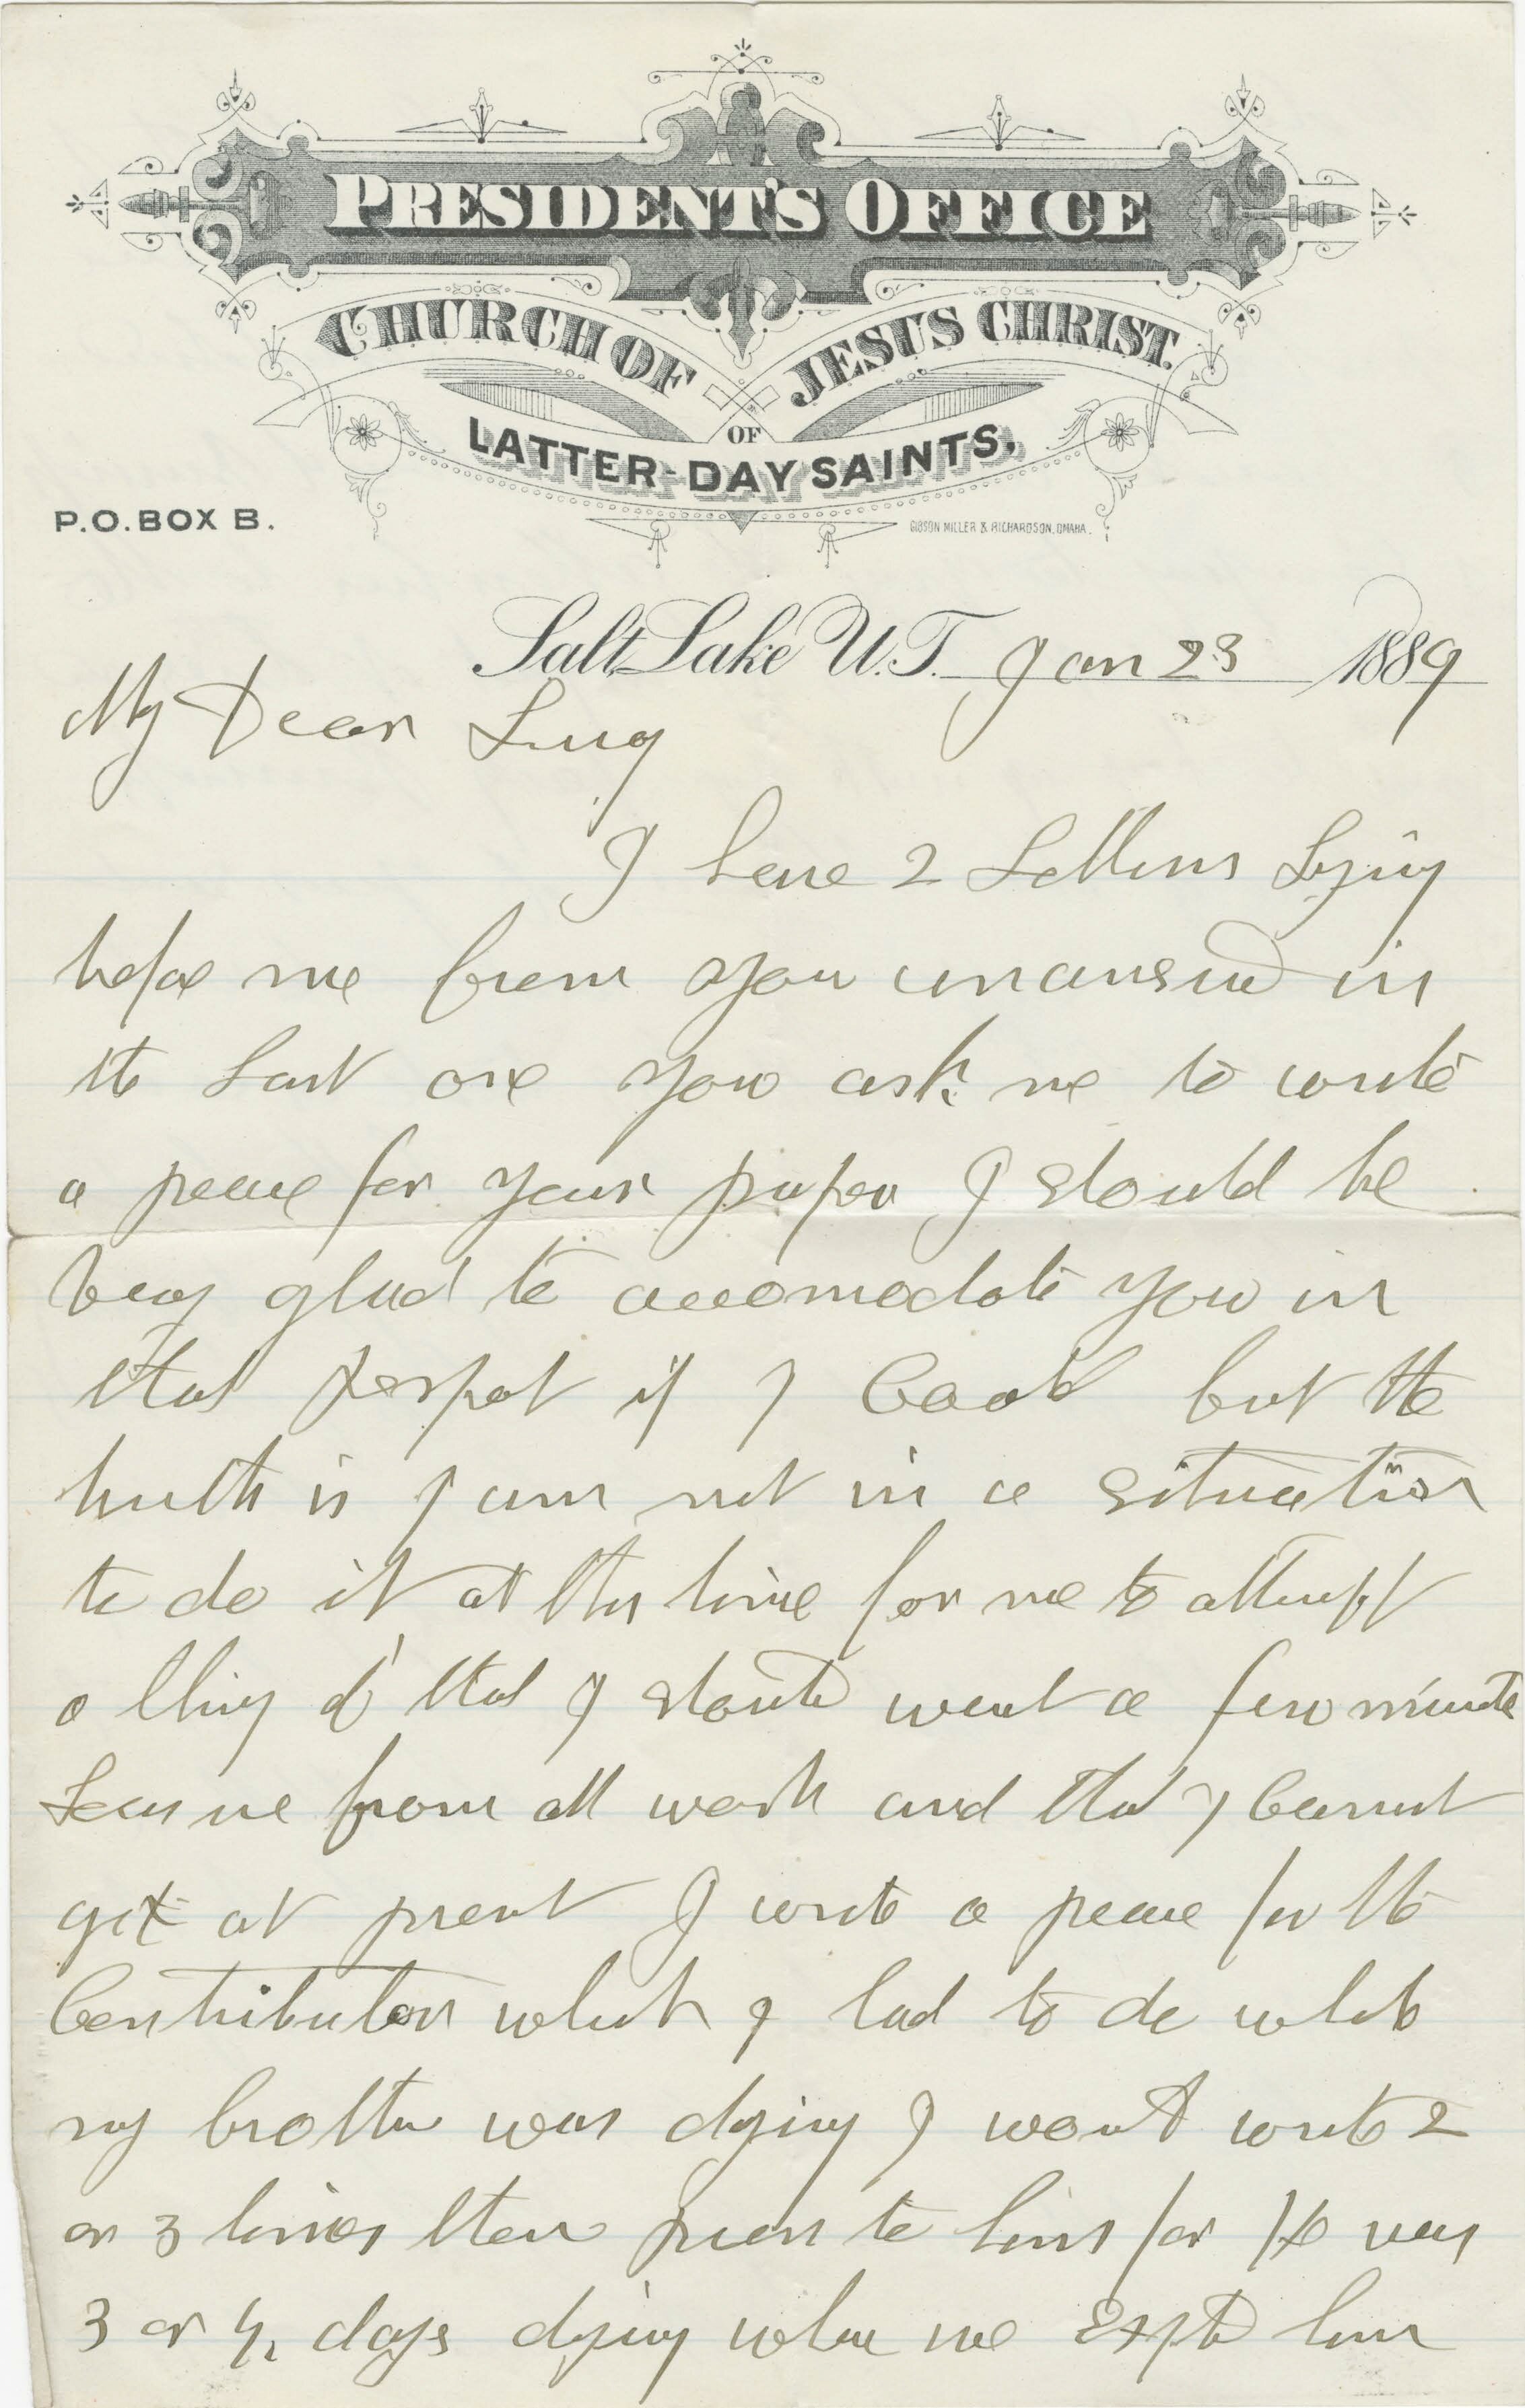 PRESIDENT'S OFFICE
CHURCH OF JESUS CHRIST
OF
LATTER-DAY SAINTS.
P.O. BOX B.
GIBSON MILLER & RICHARDSON, OMAHA.
Salt Lake U.T. Jan 23 1889
My Dear Lucy
I have 2 Letters Lying
before me from you unanswd in
the Last one you ask me to write
a peace for your paper I should be
very glad to accomodate you in
that respet if I Could but the
truth is I am not in a situation
to do it at this time for me to attempt
a thing of that I should want a few minute
Leasure from all work and that I Cannot
get at presnt I wrote a peace for the
Contributor which I had to do while
my brother was dying I would write 2
or 3 lines then run to him for He was
3 or 4 days dying when we Expted him